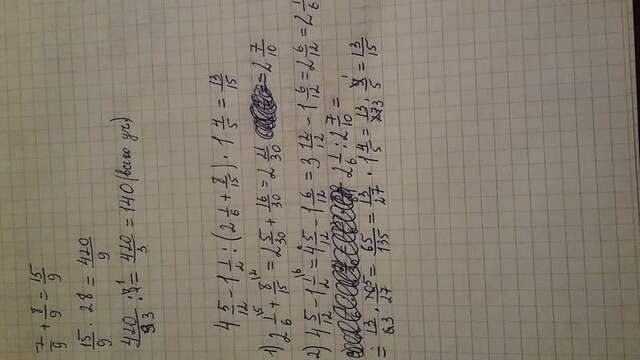 7/9 + 8/9 = 15/9
15/9 · 28 = 420/9
420/9 : = 420/3 = 140 (всего уч)
4 5/12 - 1 1/2 : (2 1/6 + 8/15) · 1 4/5 = 13/15
1) 2 1/6 + 8/15 = 2 5/30 + 16/30 = 2 21/30 = 2 7/10
2) 4 5/12 - 1 1/2 = 4 5/12 - 1 6/12 = 3 12/12 - 1 6/12 = 2 6/12 = 2 1/6
2 1/6 : 2 7/10 =
= 13/63 · /27 = 65/135 = 13/27 · 1 4/5 = 13/273 · 9/5 = 13/15